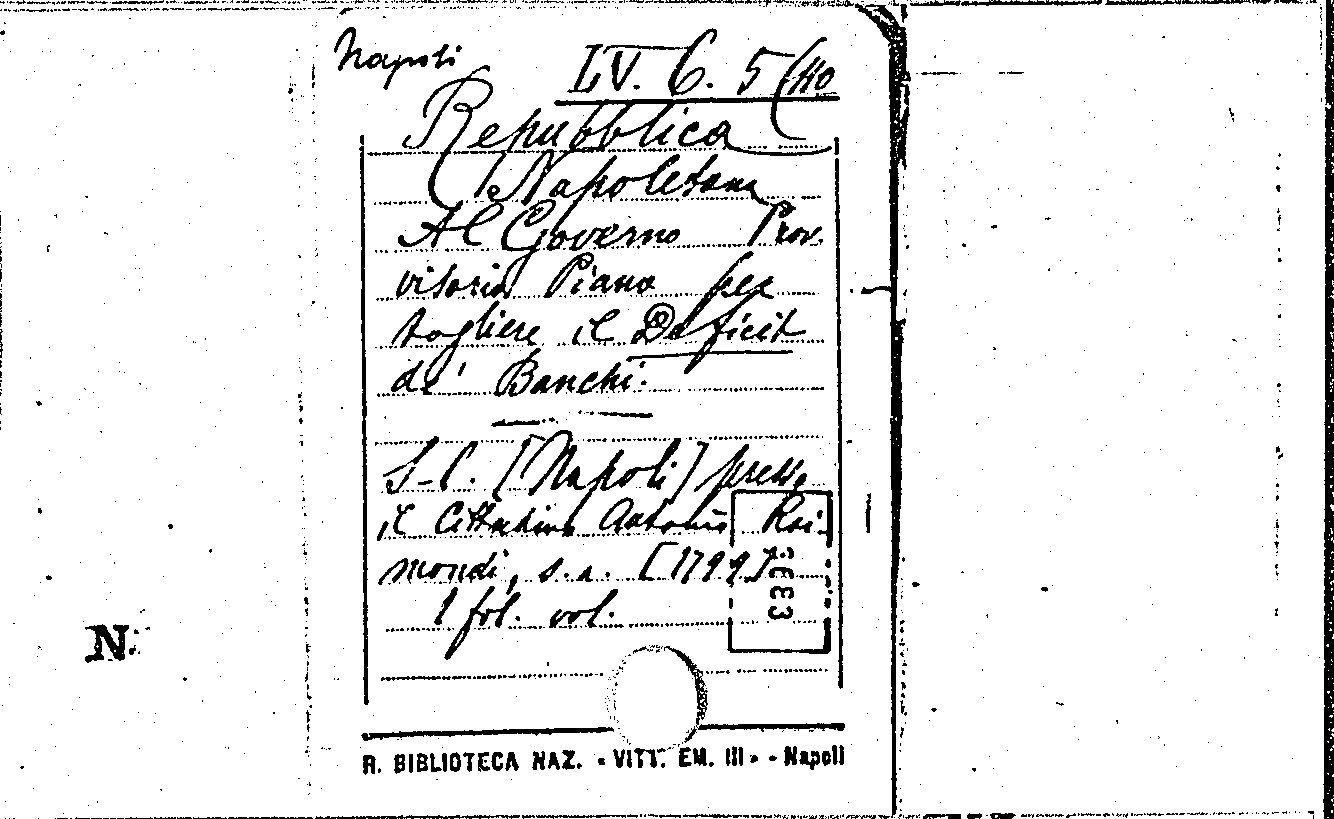 Napoli
LV. 6. 5 (40
Repubblica
Napoletana
Al Governo Prov-
visorio Piano per
togliere il Deficit
de' Banchi.
S-l. [Napoli] presso
il Cittadino Antonio Rai-
mondi, s.a. [1799]
1 fol. vol.
N.
R. BIBLIOTECA NAZ. « VITT. EM. III » - Napoli